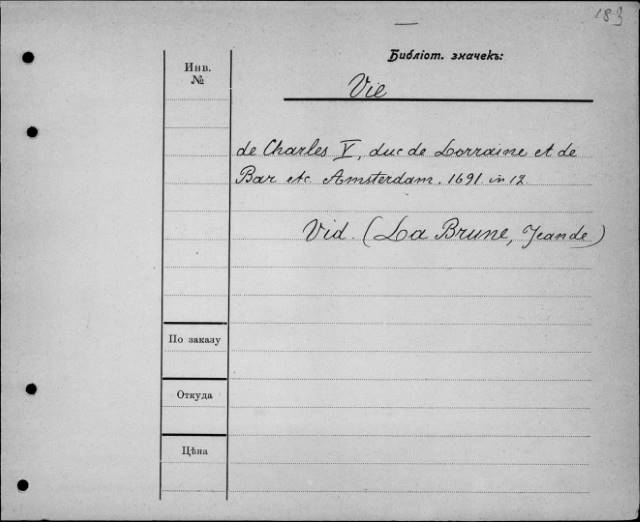 183
Библіот. значекъ:
Инв.
№
Vie
de Charles V, duc de Lorraine et de
Bar etc Amsterdam. 1691 in 12
Vid. (La Brune, Jean de)
По заказу
Откуда
Цѣна